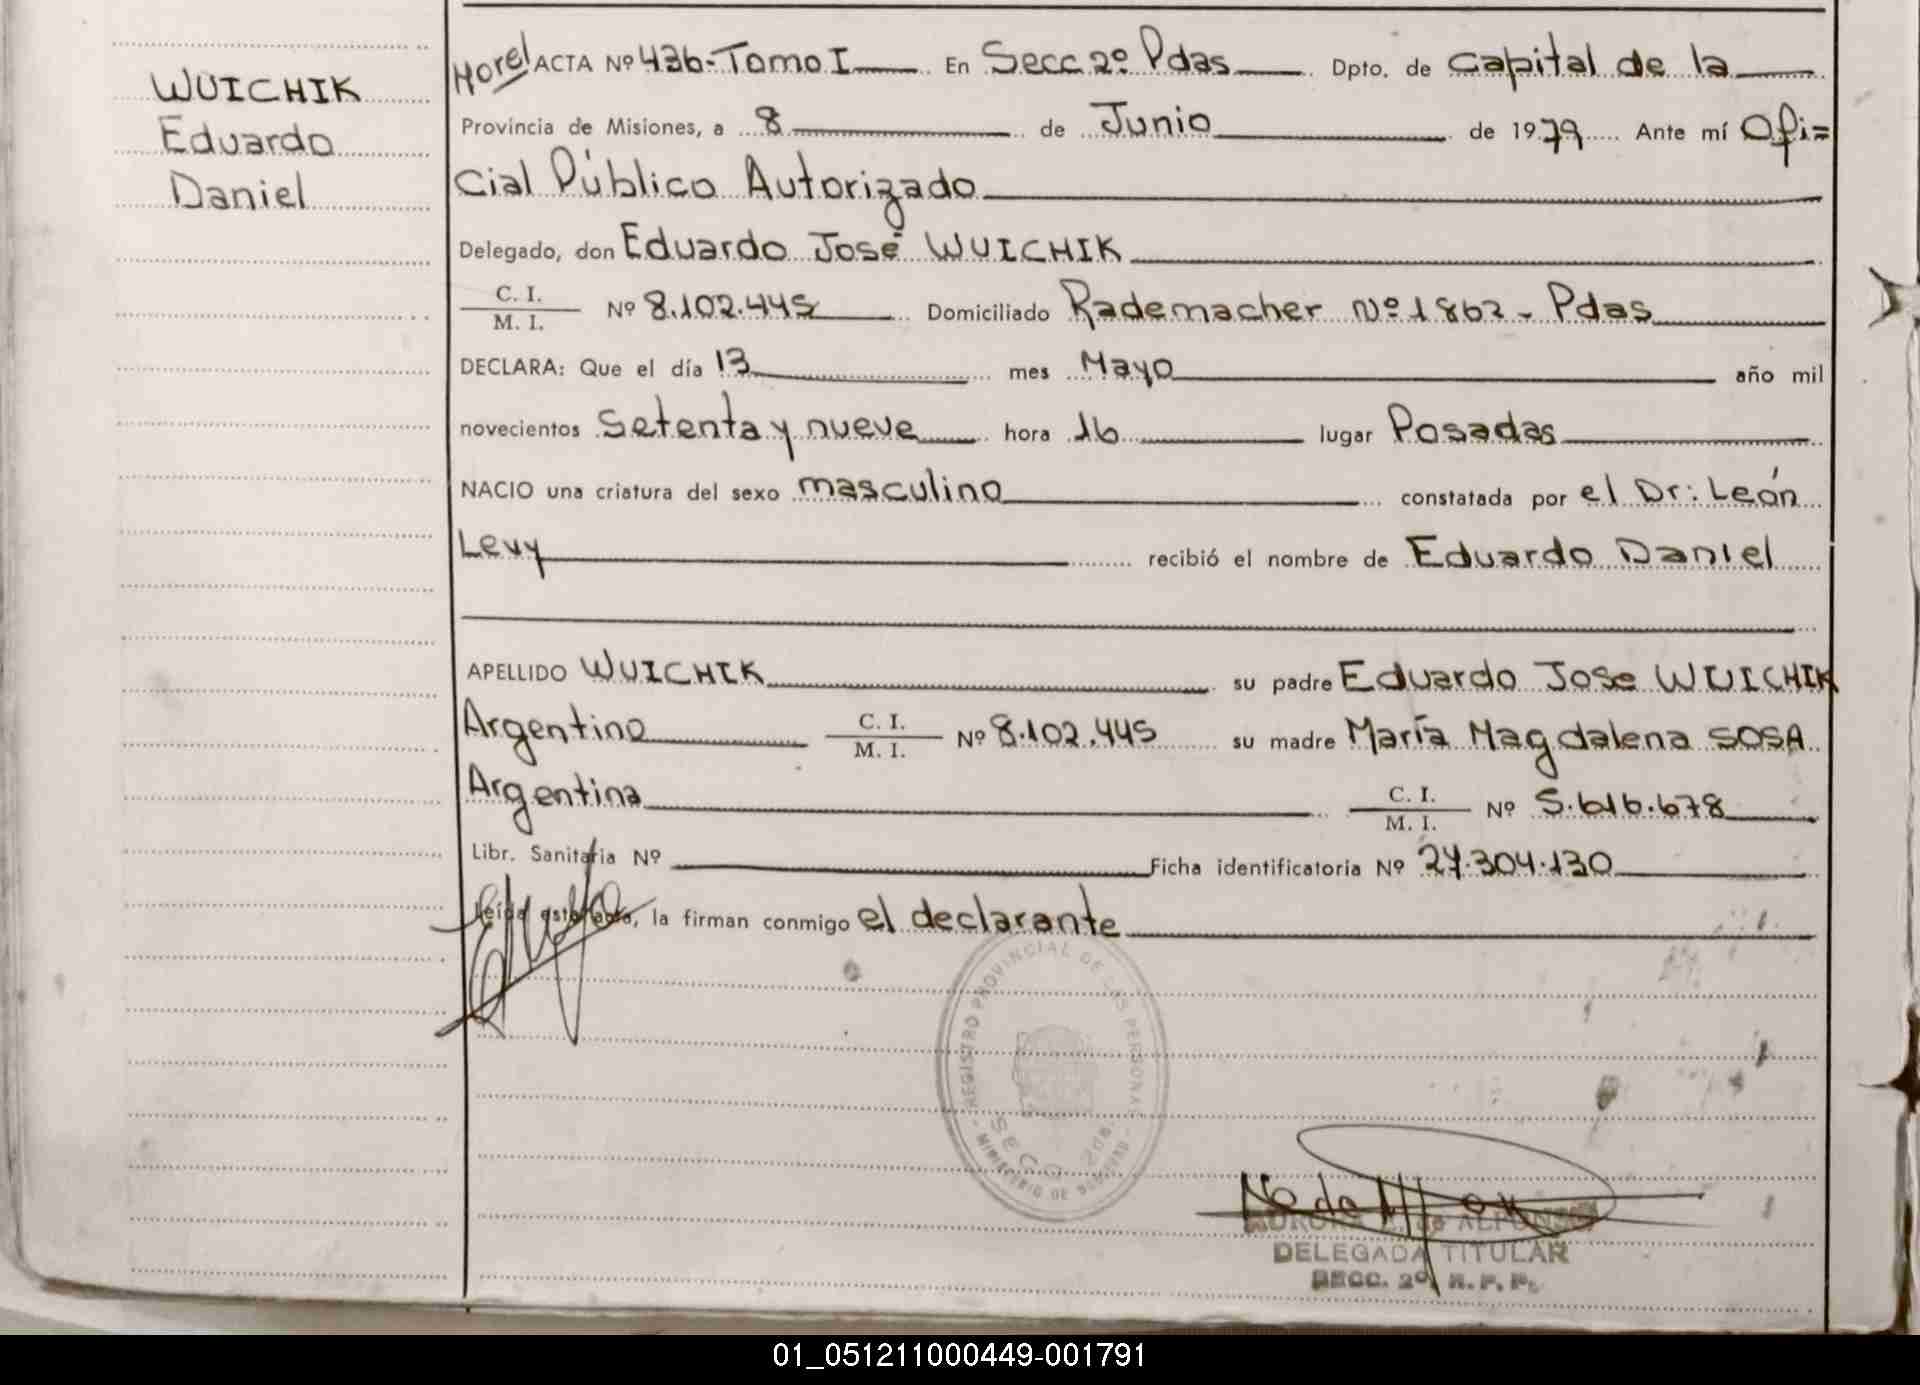 WUICHIK
Eduardo
Daniel
ACTA Nº 426-Tomo I En Secc 2º Pdas Dpto. de Capital de la
Provincia de Misiones, a 8 de Junio de 1979 Ante mí Ofi=
cial Público Autorizado
Delegado, don Eduardo José WUICHIK
C. I.
M. I. Nº 8.102.445 Domiciliado Rademacher Nº 1862 - Pdas
DECLARA: Que el día 13 mes Mayo año mil
novecientos setenta y nueve hora 16 lugar Posadas
NACIO una criatura del sexo masculino constatada por el Dr: León
Levy recibió el nombre de Eduardo Daniel
APELLIDO WUICHIK su padre Eduardo Jose WUICHIK
Argentino C. I.
M. I. Nº 8.102.445 su madre María Magdalena SOSA
Argentina C. I.
M. I. Nº 5.616.678
Libr. Sanitaria Nº Ficha identificatoria Nº 27.304.130
Leída esta acta, la firman conmigo el declarante
REGISTRO PROVINCIAL DE LAS PERSONAS
SECC. 2da.
- MINISTERIO DE GOBIERNO -
AURORA de ALFONSO
DELEGADA TITULAR
SECC. 2º R. P. P.
01_051211000449-001791